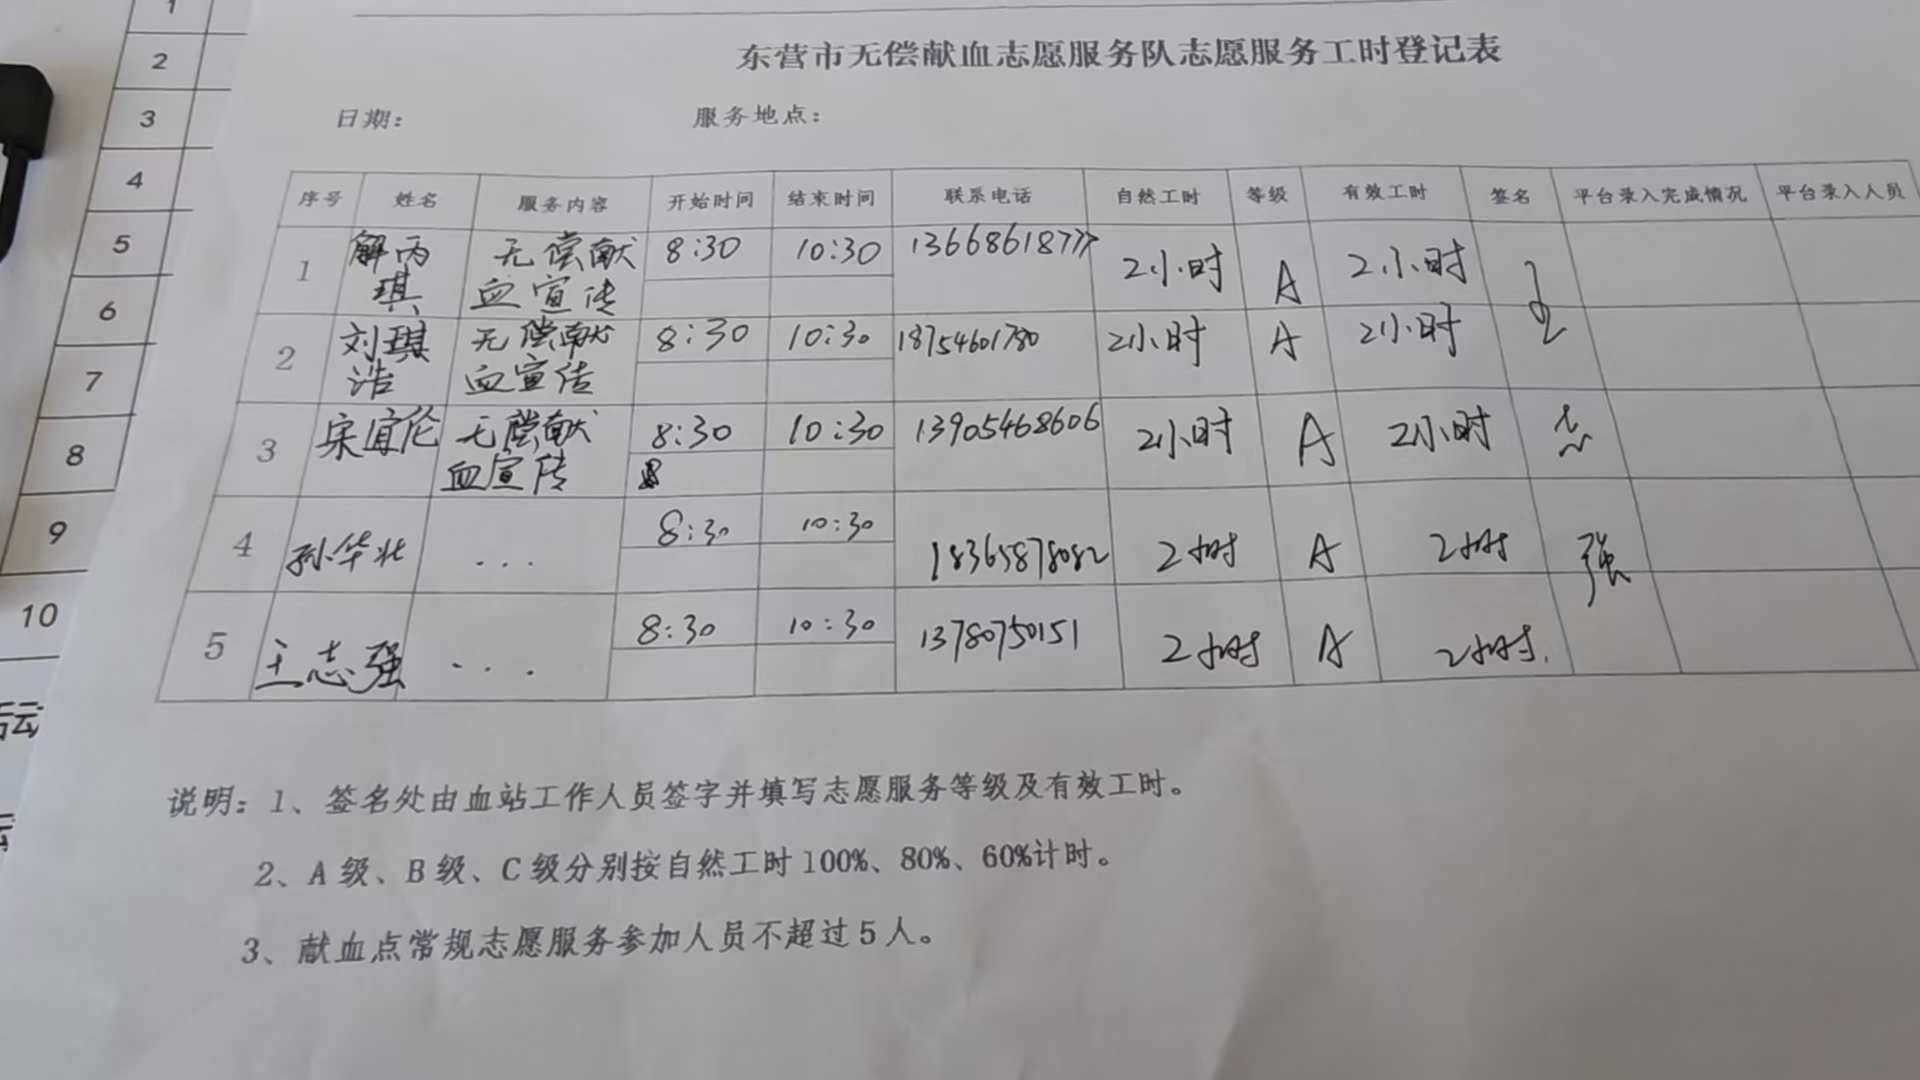 东营市无偿献血志愿服务队志愿服务工时登记表
日期： 服务地点：
序号 姓名 服务内容 开始时间 结束时间 联系电话 自然工时 等级 有效工时 签名 平台录入完成情况 平台录入人员
1 解丙琪 无偿献血宣传 8:30 10:30 13668618777 2小时 A 2小时 王
2 刘琪浩 无偿献血宣传 8:30 10:30 18754601780 2小时 A 2小时
3 宋宜伦 无偿献血宣传 8:30 10:30 13905468606 2小时 A 2小时 志
4 孙华北 ... 8:30 10:30 18365878082 2小时 A 2小时 强
5 王志强 ... 8:30 10:30 13780750151 2小时 A 2小时.
说明：1、签名处由血站工作人员签字并填写志愿服务等级及有效工时。
2、A级、B级、C级分别按自然工时100%、80%、60%计时。
3、献血点常规志愿服务参加人员不超过5人。
1
2
3
4
5
6
7
8
9
10